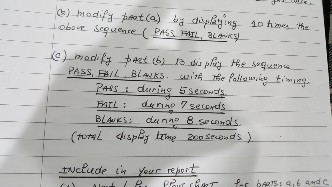 (b) modify part (a) by displaying 10 times the
above sequence (PASS, FAIL, BLANKS)
(c) modify part (b) to display the sequence
PASS, FAIL, BLANKS. with the following timing
PASS : during 5 seconds
FAIL : during 7 seconds
BLANKS: during 8 seconds.
(TOTAL display time 200 seconds)
Include in your report
for parts: a, b and c